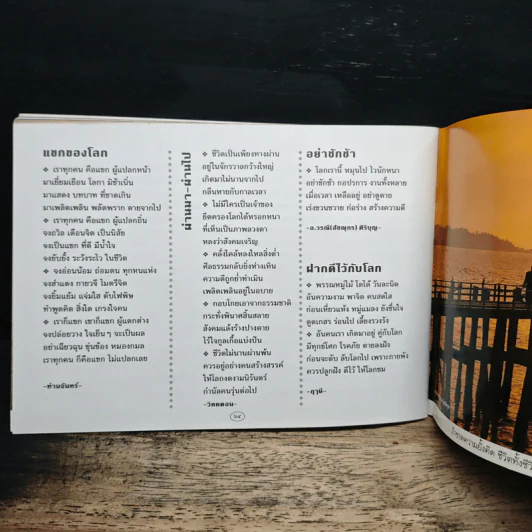 แขกของโลก
❖ เราทุกคน คือแขก ผู้แปลกหน้า
มาเยี่ยมเยือน โลกา มิช้าเนิ่น
มาแสดง บทบาท ที่ขาดเกิน
มาเพลิดเพลิน พลัดพราก ตายจากไป
❖ เราทุกคน คือแขก ผู้แปลกถิ่น
จงถวิล เตือนจิต เป็นนิสัย
จงเป็นแขก ที่ดี มีน้ำใจ
จงยับยั้ง ระวังระไว ในชีวิต
❖ จงอ่อนน้อม ถ่อมตน ทุกหนแห่ง
จงสำแดง กายวจี ไมตรีจิต
จงยิ้มแย้ม แจ่มใส ดับไฟพิษ
ทำพูดคิด สิ่งใด เกรงใจคน
❖ เราก็แขก เขาก็แขก ผู้แตกต่าง
จงปล่อยวาง ใจเย็นๆ จะเป็นผล
อย่าเฉียวฉุน ขุ่นข้อง หมองกมล
เราทุกคน ก็คือแขก ไม่แปลกเลย
-ท่านจันทร์-
ผ่านมา-ผ่านไป
❖ ชีวิตเป็นเพียงทางผ่าน
อยู่ในจักรวาลกว้างใหญ่
เกิดมาไม่นานจากไป
กลืนหายกับกาลเวลา
❖ ไม่มีใครเป็นเจ้าของ
ยึดครองโลกได้หรอกหนา
ที่เห็นเป็นภาพลวงตา
หลงว่าสังคมเจริญ
❖ คลั่งไคล้หลงใหลสิ่งต่ำ
ศีลธรรมกลับยิ่งห่างเหิน
ความดีถูกย่ำทำเมิน
เพลิดเพลินอยู่ในอบาย
❖ กอบโกยเอาจากธรรมชาติ
กระทั่งพินาศสิ้นสลาย
สังคมแล้งร้างปางตาย
ไร้ใจถูลกี้อแบ่งปัน
❖ ชีวิตไม่นานผ่านพ้น
ควรอยู่อย่างคนสร้างสรรค์
ให้โลกงดงามนิรันดร์
กำนัลคนรุ่นต่อไป
๖๔
อย่าชักช้า
❖ โลกเรานี้ หมุนไป ไวนักหนา
อย่าชักช้า กอปรการ งานทั้งหลาย
เมื่อเวลา เหลืออยู่ อย่าดูดาย
เร่งขวนขวาย ก่อร่าง สร้างความดี
ฝากดีไว้กับโลก
❖ พรรณหมู่ไม้ โตได้ วันละนิด
อันความงาม พาจิต คนสดใส
ก่อนเหี่ยวแห้ง หมู่แมลง ยังชื่นใจ
ดูดเกสร ร่อนไป เลี้ยงรวงรัง
❖ อันคนเรา เกิดมาอยู่ คู่กับโลก
มีทุกข์โศก โรคภัย ตายลงฝัง
ก่อนจะดับ ลับโลกไป เพราะกายพัง
ควรปลูกฝัง ดีไว้ ให้โลกชม
-ฤๅษี-